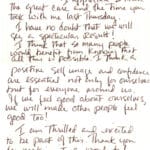 the great care and the time you
talk with me last Thursday.
I have no doubt that we will
a spectacular result!
I think that so many people
benefit from having that
all this is possible. I think a
positive self image and confidence
are essential not only for ourselves
but for everyone around us.
If we feel good about ourselves,
we will make other people feel
good too!
I am thrilled and excited
to be part of this. Thank you